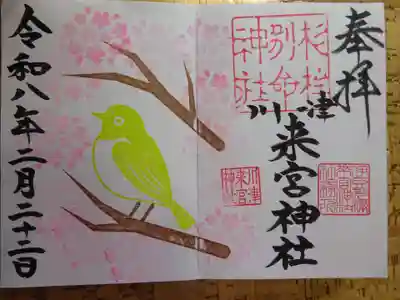 奉拝
杉桙
別命
神社
川津
来宮神社
川津
来宮
神
令和八年二月二十二日